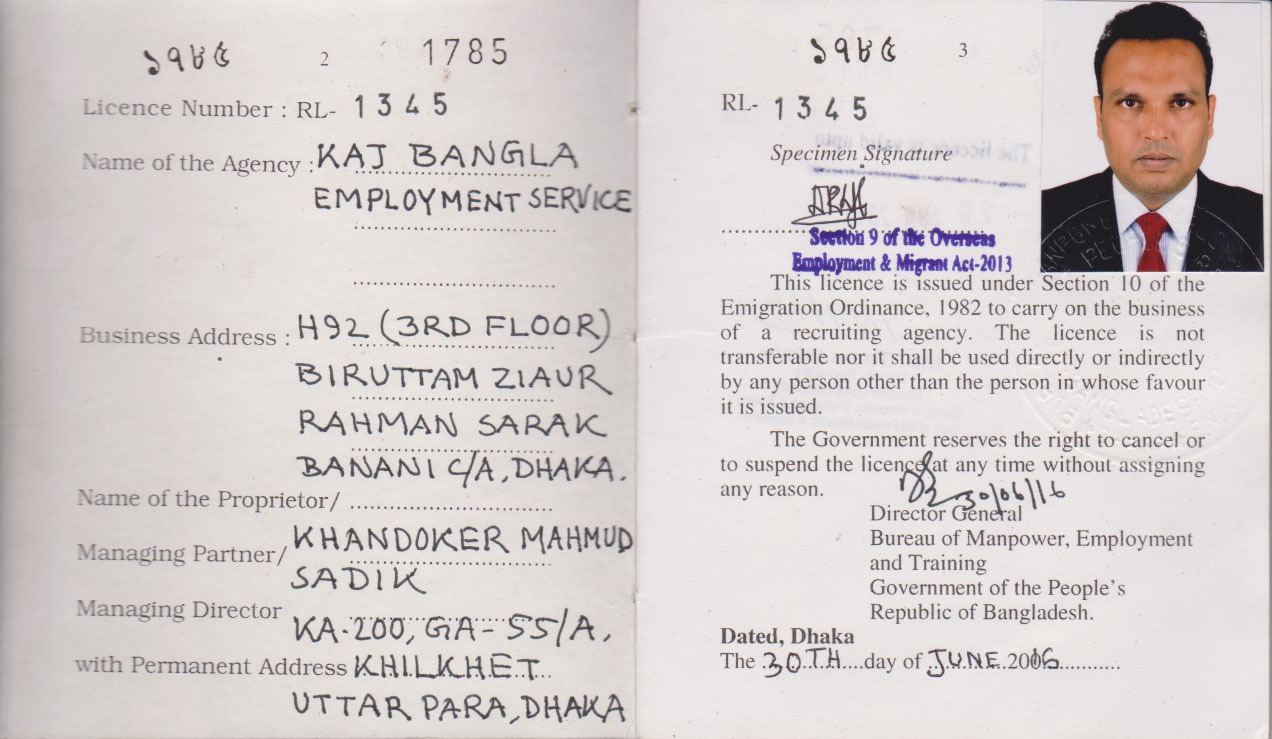 ১৭৮৫ 2 1785
Licence Number : RL- 1345
Name of the Agency : KAJ BANGLA
EMPLOYMENT SERVICE
Business Address : H92 (3RD FLOOR)
BIRUTTAM ZIAUR
RAHMAN SARAK
BANANI C/A, DHAKA.
Name of the Proprietor/
Managing Partner/ KHANDOKER MAHMUD
SADIK
Managing Director
KA-200, GA-55/A,
with Permanent Address KHILKHET
UTTAR PARA, DHAKA
১৭৮৫ 3
RL- 1345
Specimen Signature
Section 9 of the Overseas
Employment & Migrant Act-2013
This licence is issued under Section 10 of the
Emigration Ordinance, 1982 to carry on the business
of a recruiting agency. The licence is not
transferable nor it shall be used directly or indirectly
by any person other than the person in whose favour
it is issued.
The Government reserves the right to cancel or
to suspend the licence at any time without assigning
any reason.
30/06/16
Director General
Bureau of Manpower, Employment
and Training
Government of the People's
Republic of Bangladesh.
Dated, Dhaka
The 30TH day of JUNE 2016